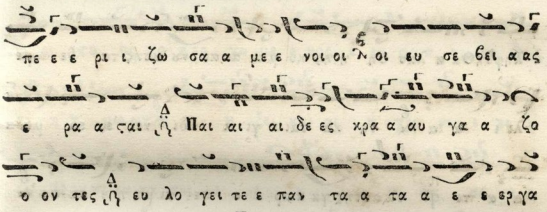 πε ε ε ρι ι ζω σα α με ε νοι οι λ οι ευ σε βει α ας
ε ρα α ται Παι αι αι δε ες κρα α αυ γα α ζο
ο ον τες ευ λο γει τε ε παν τα α τα α ε ε ερ γα